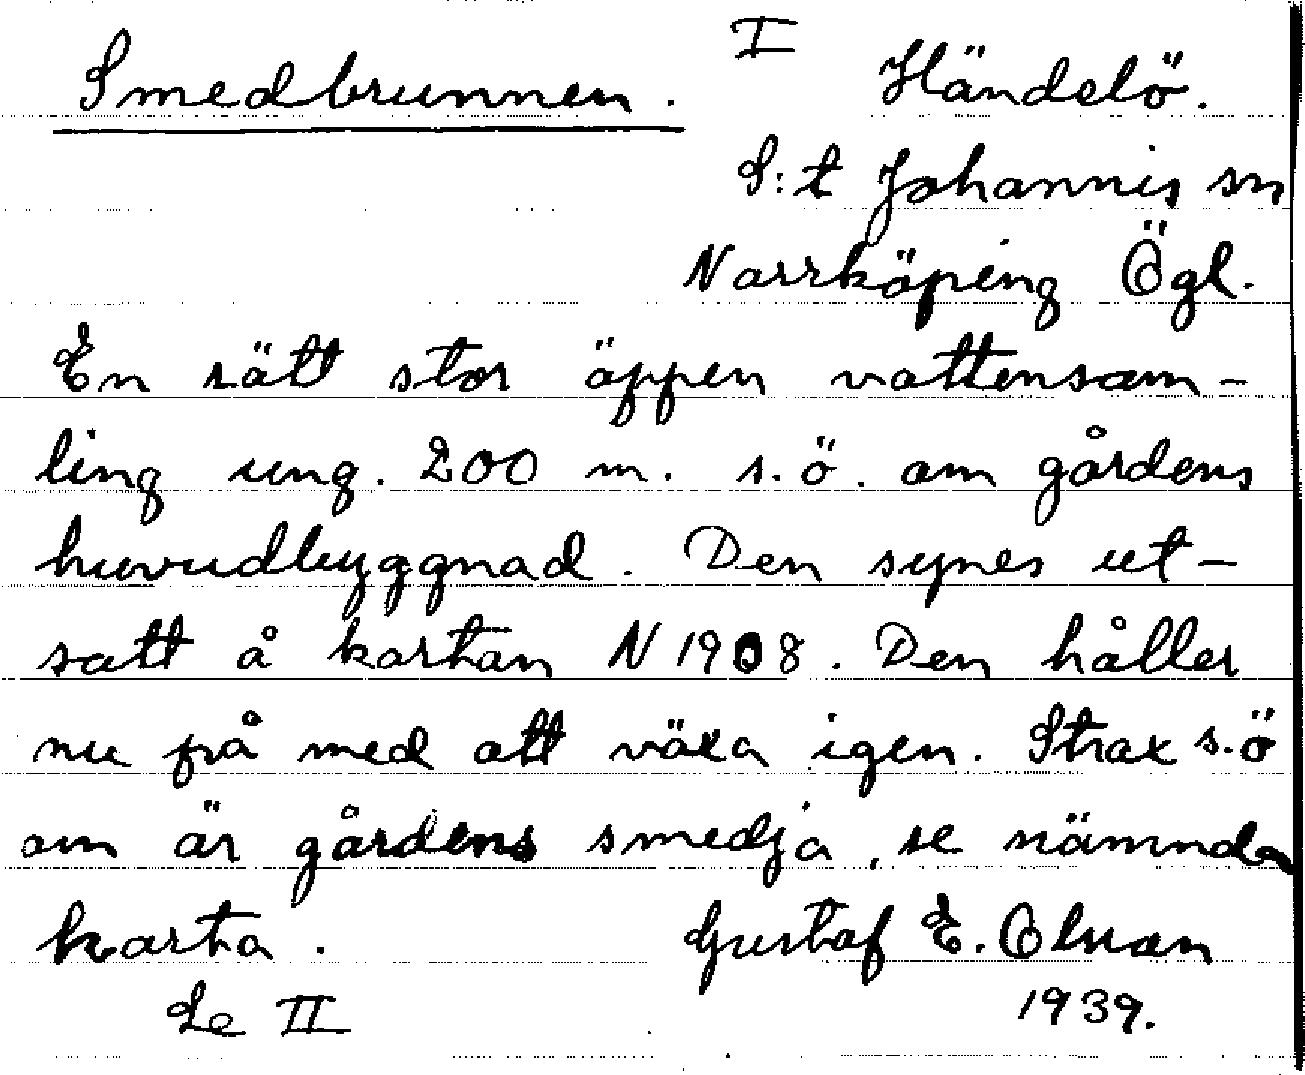 I
Smedbrunnen. Händelö.
S:t Johannis sn
Norrköping Ögl.
En rätt stor öppen vattensam-
ling ung. 200 m. s.ö. om gårdens
huvudbyggnad. Den synes ut-
satt å kartan N 1908. Den håller
nu på med att växa igen. Strax s.ö
om är gårdens smedja, se nämnda
karta. Gustaf E. Olsson
Se II 1939.